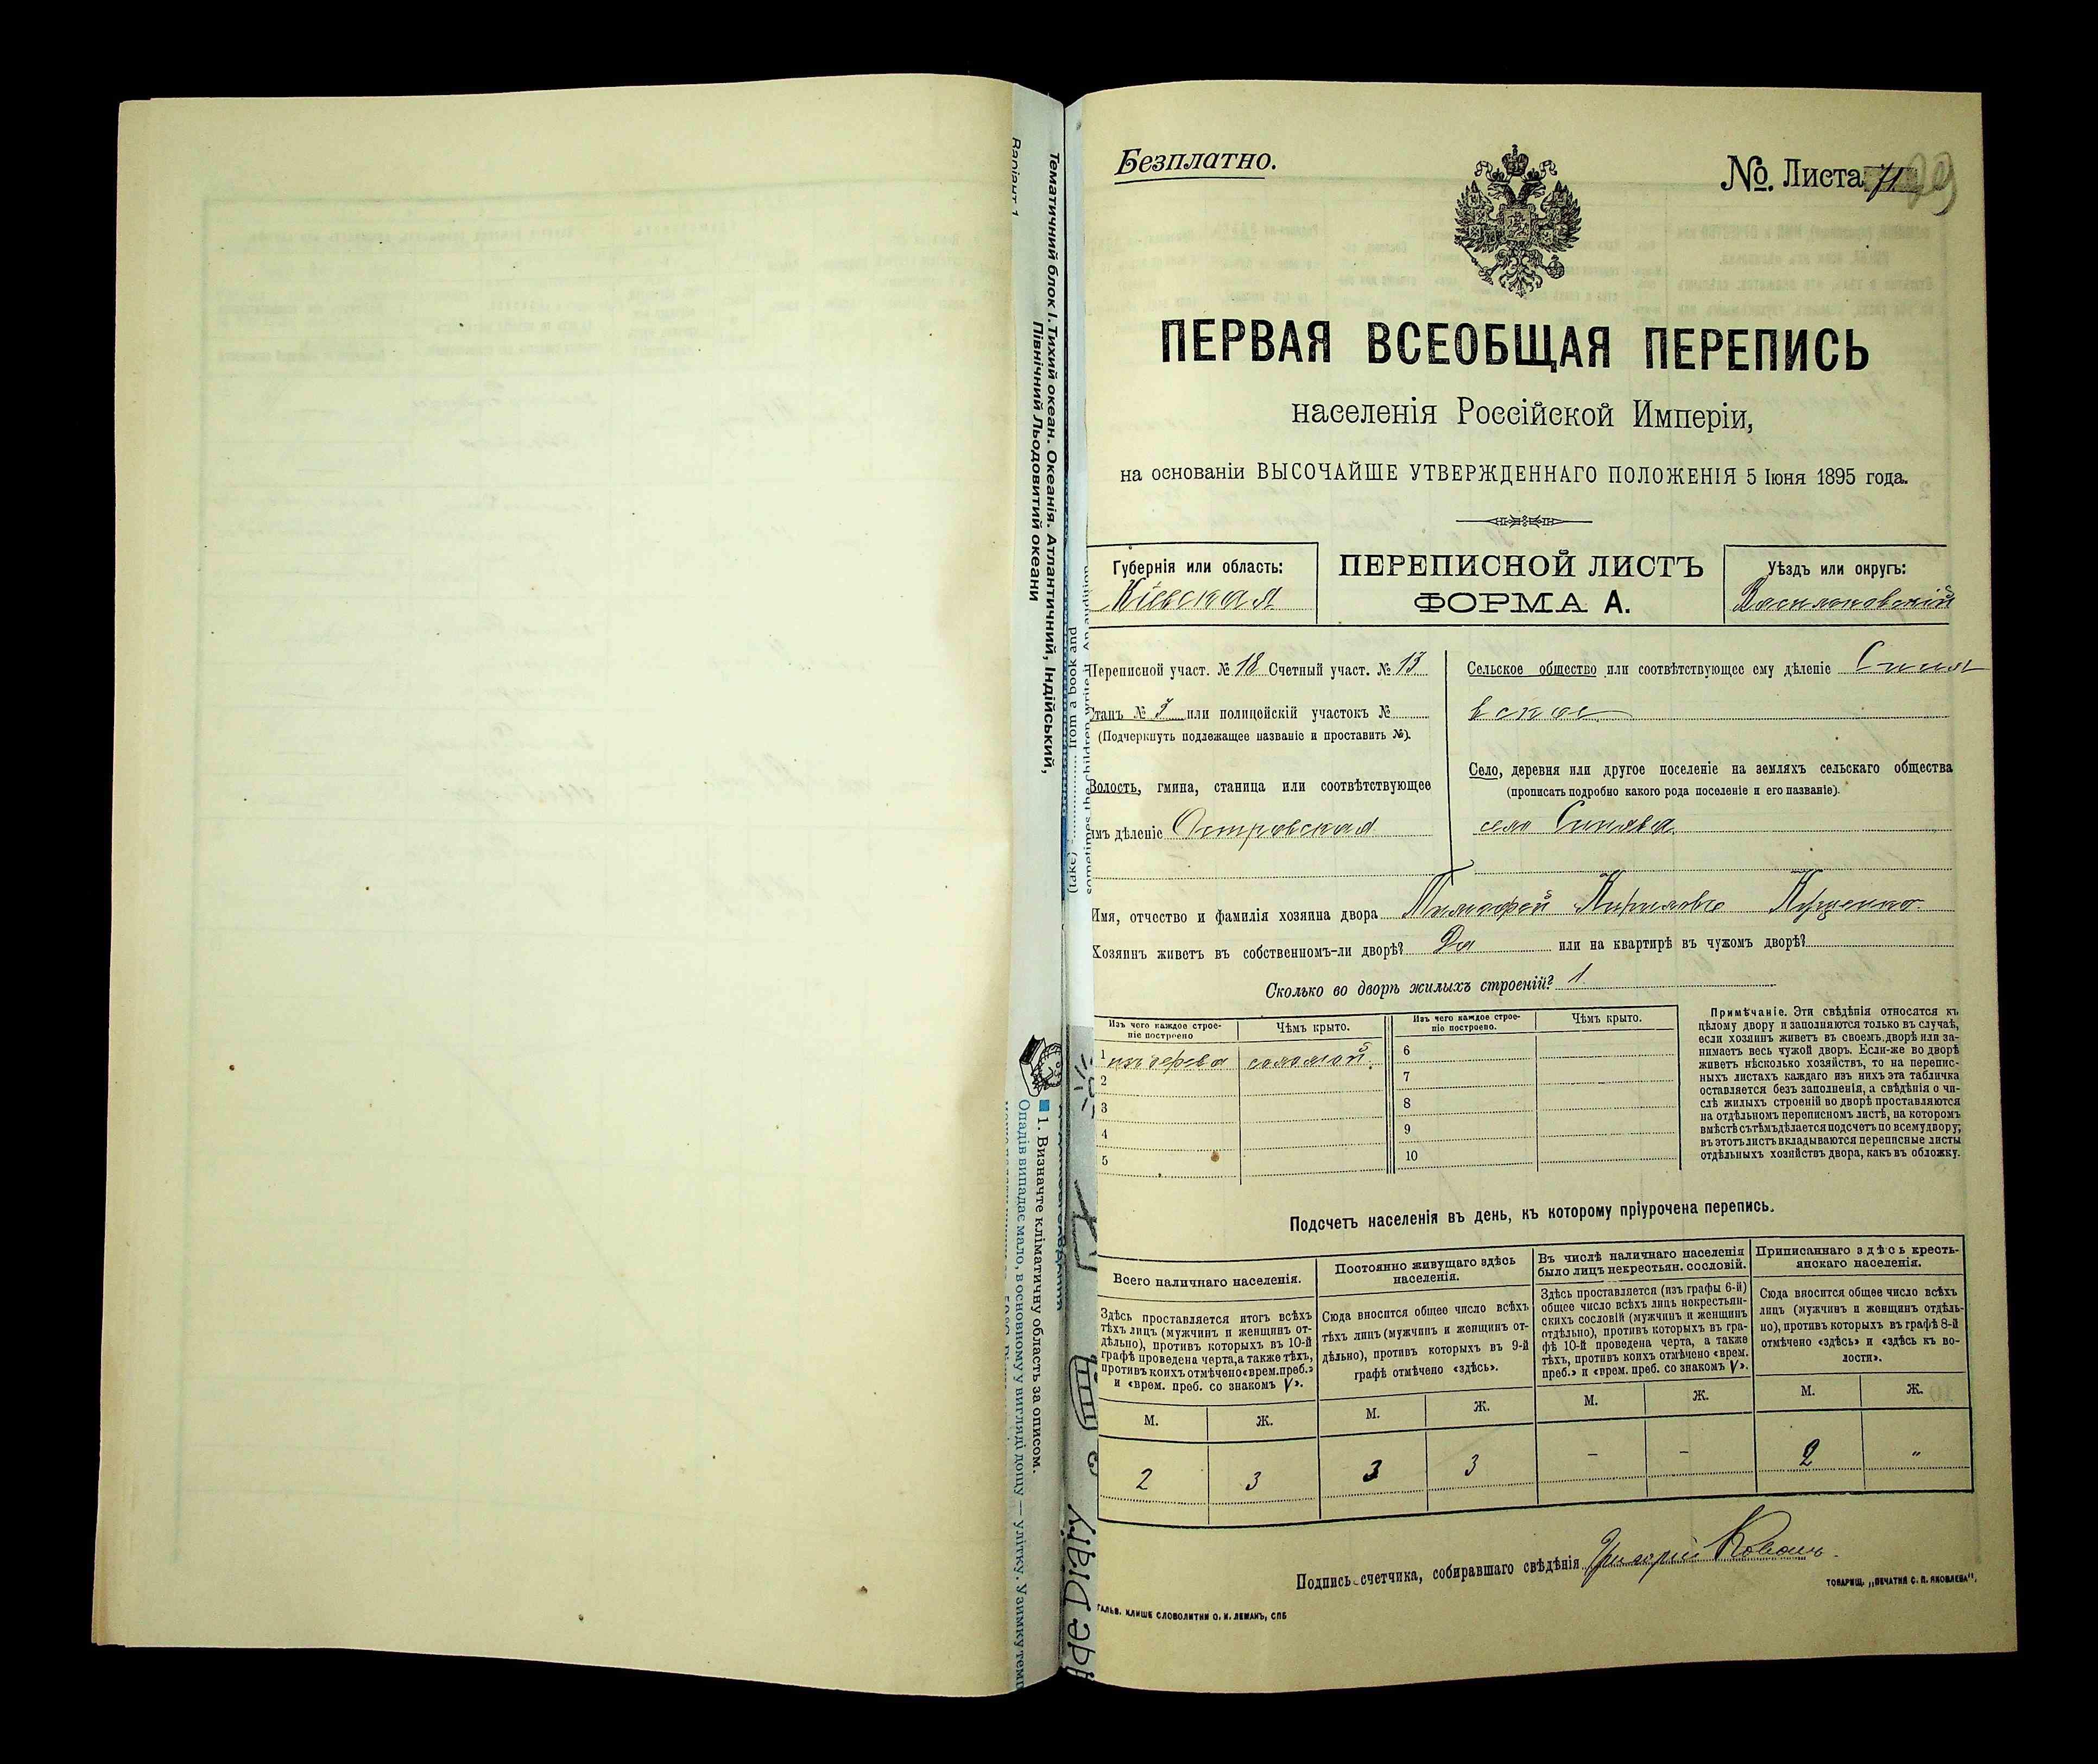 Безплатно.
No. Листа 71
ПЕРВАЯ ВСЕОБЩАЯ ПЕРЕПИСЬ
населенія Россійской Имперіи,
на основаніи ВЫСОЧАЙШЕ УТВЕРЖДЕННАГО ПОЛОЖЕНІЯ 5 Іюня 1895 года.
Губернія или область:
Кіевская
ПЕРЕПИСНОЙ ЛИСТЪ
ФОРМА А.
Уѣздъ или округъ:
Васильковскій
Переписной участ. № 18 Счетный участ. № 13
Станъ № 3 или полицейскій участокъ №
(Подчеркнуть подлежащее названіе и проставить №).
Волость, гмина, станица или соотвѣтствующее
имъ дѣленіе Островская
Сельское общество или соотвѣтствующее ему дѣленіе Синя
вское
Село, деревня или другое поселеніе на земляхъ сельскаго общества
(прописать подробно какого рода поселеніе и его названіе).
село Синява
Имя, отчество и фамилія хозяина двора Тимофей
Хозяинъ живетъ въ собственномъ-ли дворѣ? Да или на квартирѣ въ чужомъ дворѣ?
Сколько во дворѣ жилыхъ строеній? 1
Изъ чего каждое строе-
ніе построено
Чѣмъ крыто.
Изъ чего каждое строе-
ніе построено.
Чѣмъ крыто.
1 изъ дерева соломой
2
3
4
5
6
7
8
9
10
Примѣчаніе. Эти свѣдѣнія относятся къ
цѣлому двору и заполняются только въ случаѣ,
если хозяинъ живетъ въ своемъ дворѣ или за-
нимаетъ весь чужой дворъ. Если-же во дворѣ
живетъ нѣсколько хозяйствъ, то на перепис-
ныхъ листахъ каждаго изъ нихъ эта табличка
оставляется безъ заполненія, а свѣдѣнія о чи-
слѣ жилыхъ строеній во дворѣ проставляются
на отдѣльномъ переписномъ листѣ, на которомъ
вмѣстѣ съ тѣмъ дѣлается подсчетъ по всему двору;
въ этотъ листъ вкладываются переписные листы
отдѣльныхъ хозяйствъ двора, какъ въ обложку.
Подсчетъ населенія въ день, къ которому пріурочена перепись.
Всего наличнаго населенія.
Здѣсь проставляется итогъ всѣхъ
тѣхъ лицъ (мужчинъ и женщинъ от-
дѣльно), противъ которыхъ въ 10-й
графѣ проведена черта, а также тѣхъ,
противъ коихъ отмѣчено «врем. преб.»
и «врем. преб. со знакомъ V».
Постоянно живущаго здѣсь
населенія.
Сюда вносится общее число всѣхъ
тѣхъ лицъ (мужчинъ и женщинъ от-
дѣльно), противъ которыхъ въ 9-й
графѣ отмѣчено «здѣсь».
Въ числѣ наличнаго населенія
было лицъ некрестьян. сословій.
Здѣсь проставляется (изъ графы 6-й)
общее число всѣхъ лицъ некрестьян-
скихъ сословій (мужчинъ и женщинъ
отдѣльно), противъ которыхъ въ гра-
фѣ 10-й проведена черта, а также
тѣхъ, противъ коихъ отмѣчено «врем.
преб.» и «врем. преб. со знакомъ V».
Приписаннаго здѣсь кресть-
янскаго населенія.
Сюда вносится общее число всѣхъ
лицъ (мужчинъ и женщинъ отдѣль-
но), противъ которыхъ въ графѣ 8-й
отмѣчено «здѣсь» и «здѣсь къ во-
лости».
М. Ж. М. Ж. М. Ж. М. Ж.
2 3 3 3 – – 2 "
Подпись счетчика, собиравшаго свѣдѣнія Григорій Коваль.
ГАЛЬВ. КЛИШЕ СЛОВОЛИТНИ О. И. ЛЕМАНЪ, СПБ
ТОВАРИЩ. „ПЕЧАТНЯ С. П. ЯКОВЛЕВА“.
Варіант 1
Тематичний блок І. Тихий океан. Океанія. Атлантичний, Індійський,
Північний Льодовитий океани
(take) from a book and
sometimes the children write it. An audition
1. Визначте кліматичну область за описом.
Опадів випадає мало, в основному у вигляді дощу — улітку. Узимку
Diary